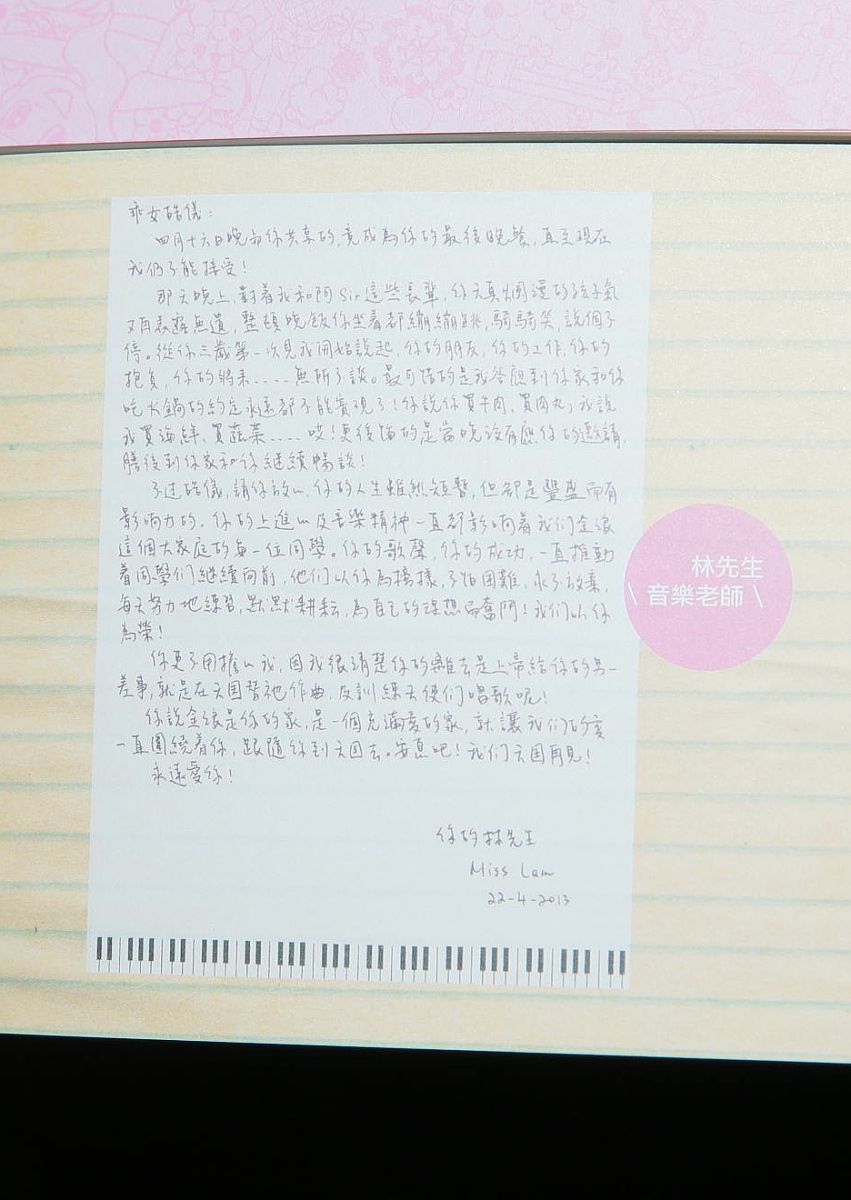 乖女皓儀：
四月十六日晚和你共享的，竟成為你的最後晚餐，直至現在
我仍不能接受！
那天晚上，對着我和阿Sir這些長輩，你天真爛漫的孩子氣
又再表露無遺，整頓晚飯你坐着都繃繃跳，騎騎笑，說個不
停。從你三歲第一次見我開始說起，你的朋友，你的工作，你的
抱負，你的將來.....無所不談。最可惜的是我答應到你家和你
吃火鍋的約定永遠都不能實現了！你說你買牛肉、買肉丸，我說
我買海鮮、買蔬菜....哎！更後悔的是當晚沒有應你的邀請，
膳後到你家和你繼續暢談！
不过皓儀，請你放心，你的人生雖然短暫，但卻是豐盛而有
影响力的。你的上進心及音樂精神一直都影响着我們金銀
這個大家庭的每一位同學。你的歌聲，你的成功，一直推動
着同學們繼續向前，他們以你為榜樣，不怕困難，永不放棄，
每天努力地練習，默默耕耘，為自己的理想而奮鬥！我們以你
為榮！
你更不用擔心我，因我很清楚你的離去是上帝給你的另一
差事，就是在天国替祂作曲，及訓練天使们唱歌呢！
你說金銀是你的家，是一個充滿愛的家，就讓我们的愛
一直圍繞着你，跟隨你到天国去。安息吧！我们天国再見！
永遠愛你！
你的林先生
Miss Lam
22-4-2013
林先生
\ 音樂老師 \